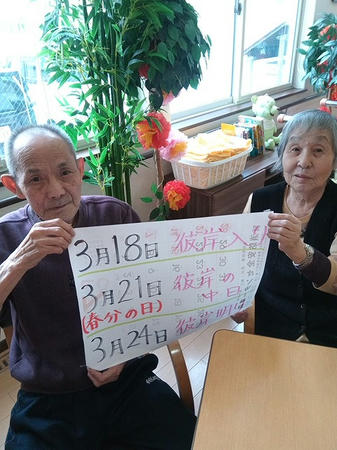 3月18日 彼岸入
3月21日 彼岸の中日
(春分の日)
3月24日 彼岸明け